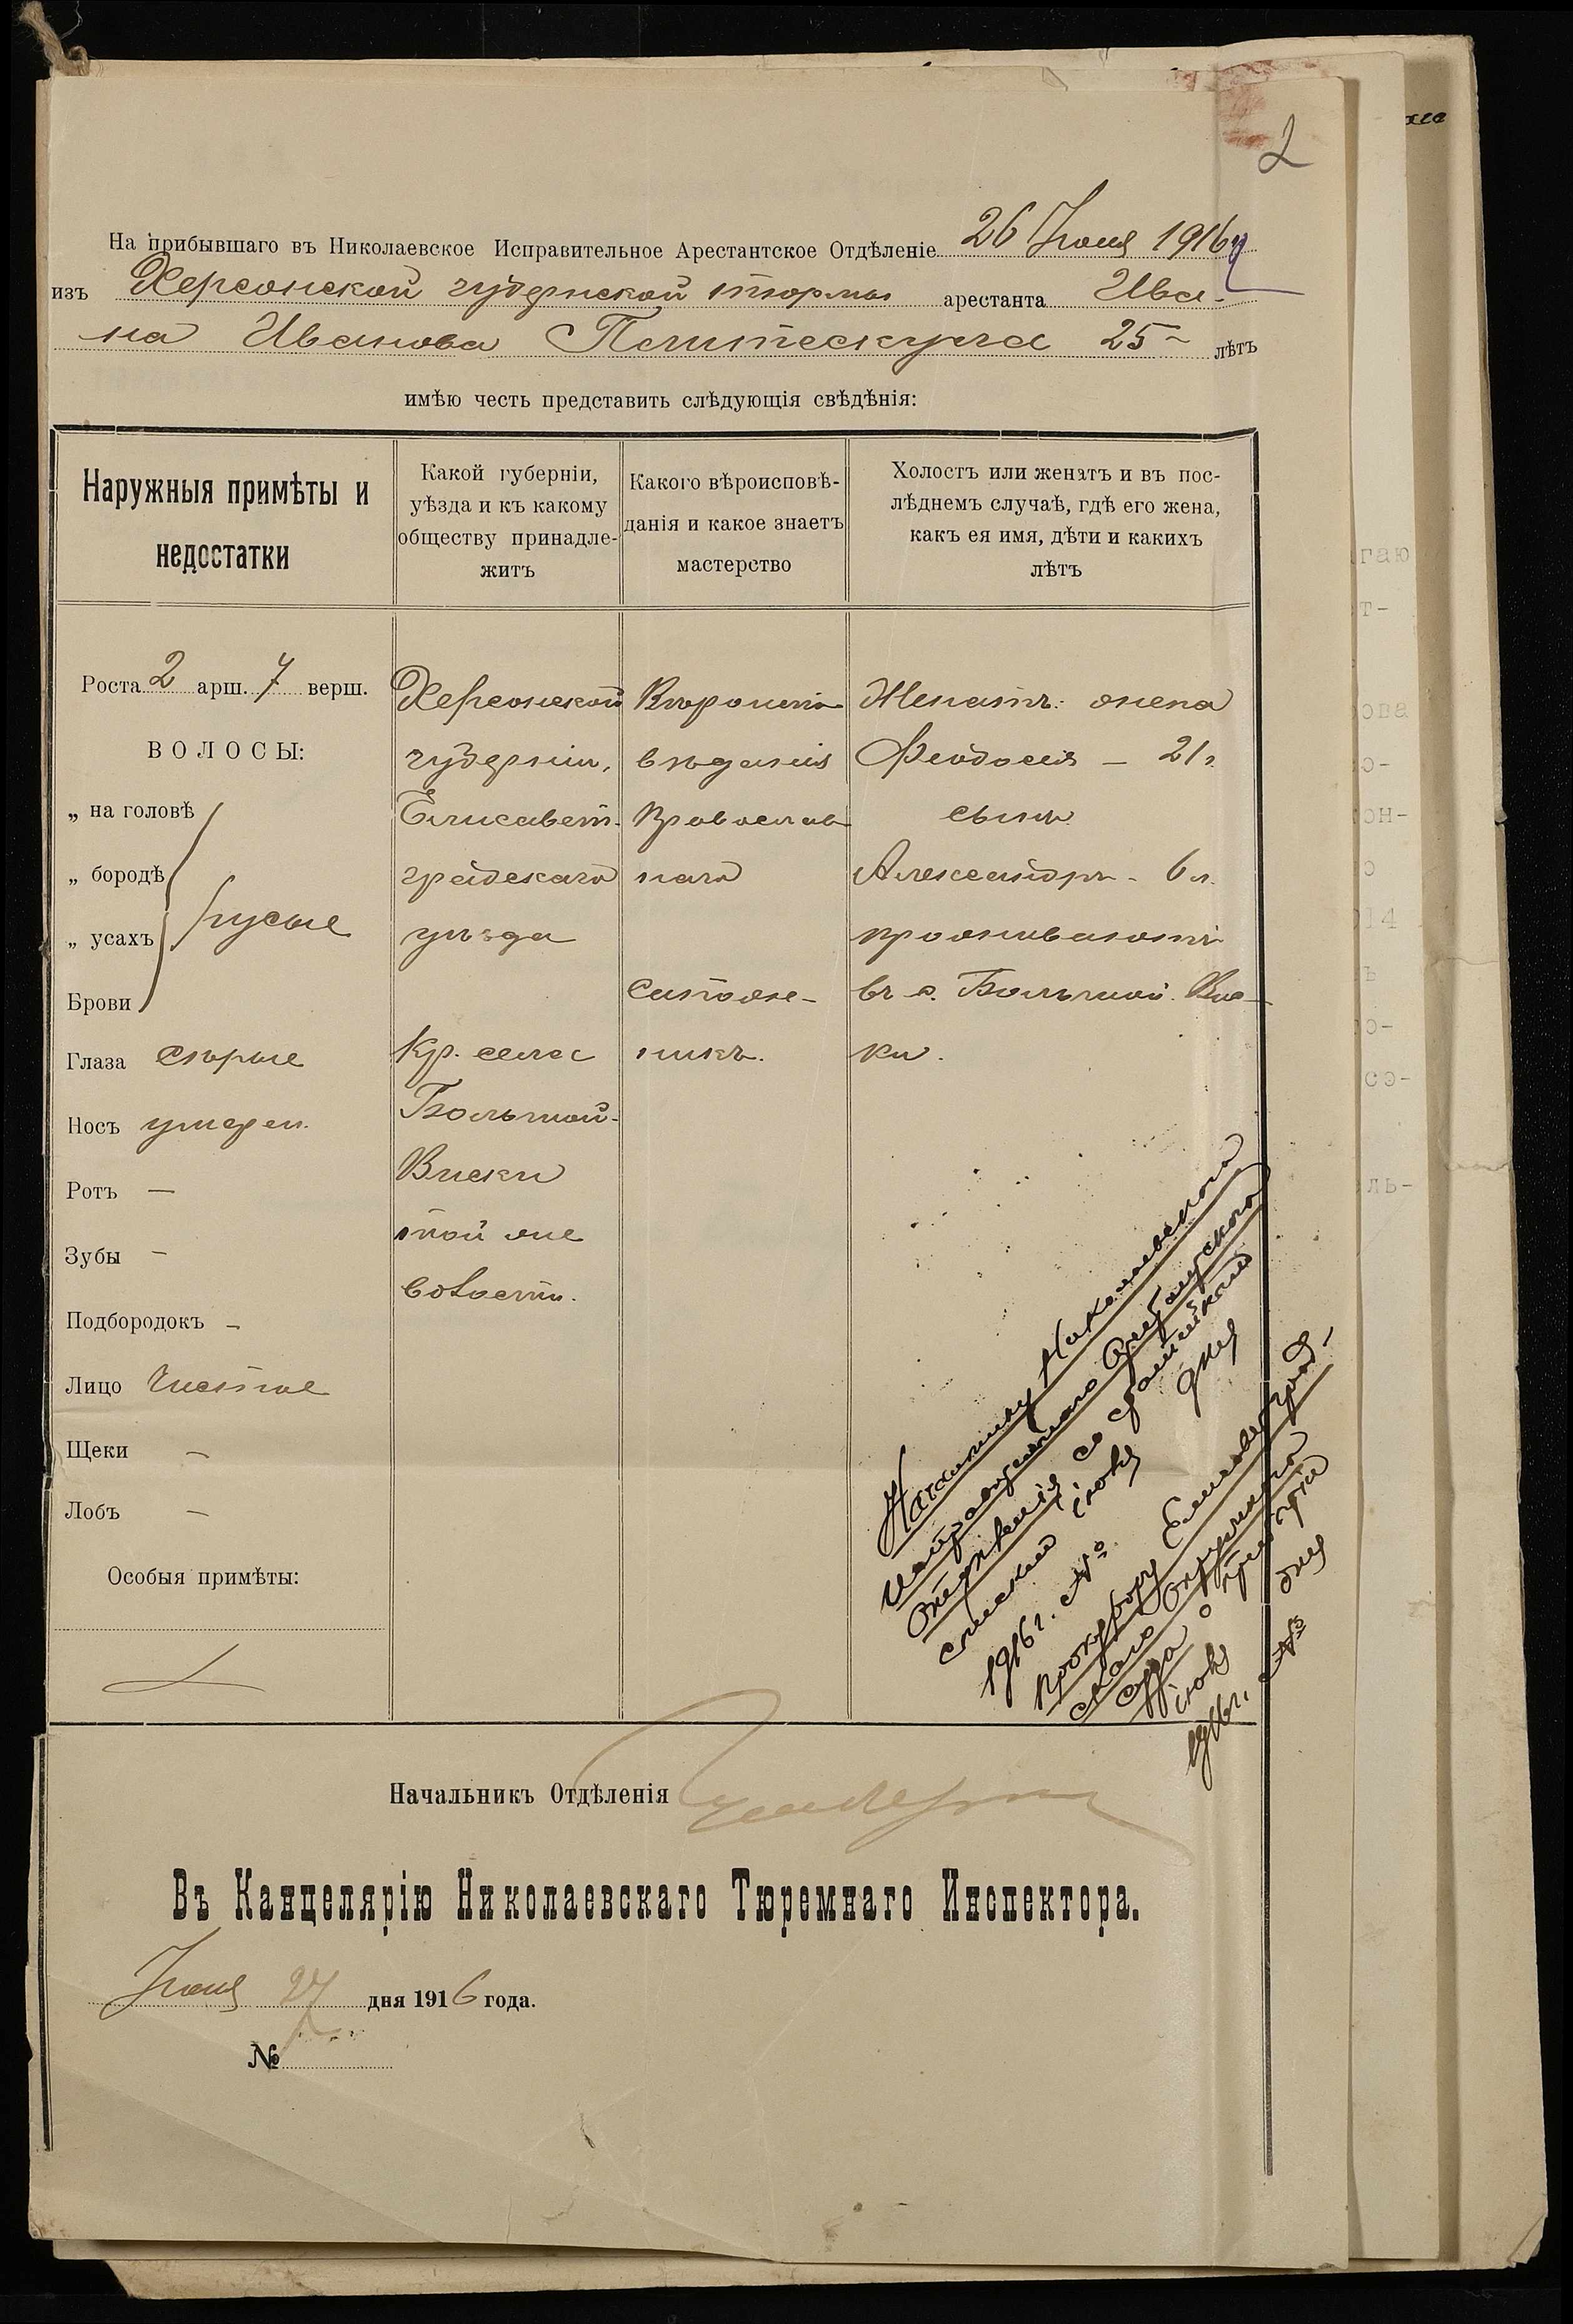 2
На прибывшаго въ Николаевское Исправительное Арестантское Отдѣленіе 26 Іюня 1916 г.
изъ Херсонской губернской тюрьмы арестанта Ива-
на Иванова 25 лѣтъ
имѣю честь представить слѣдующія свѣдѣнія:
Наружныя примѣты и
недостатки
Какой губерніи,
уѣзда и къ какому
обществу принадле-
житъ
Какого вѣроисповѣ-
данія и какое знаетъ
мастерство
Холостъ или женатъ и въ пос-
лѣднемъ случаѣ, гдѣ его жена,
какъ ея имя, дѣти и какихъ
лѣтъ
Роста 2 арш. 7 верш.
ВОЛОСЫ:
„ на головѣ
„ бородѣ
„ усахъ
русые
Брови
Глаза сѣрые
Носъ умѣрен.
Ротъ —
Зубы —
Подбородокъ —
Лицо чистое
Щеки —
Лобъ —
Особыя примѣты:
Херсонской
губерніи,
Елисавет-
градскаго
уѣзда
кр. села
Большой-
Виски
той же
волости.
Вѣроиспо-
вѣданія
Православ-
наго
Сапож-
никъ.
Женатъ: жена
Феодосія — 21 г.
сынъ
Александръ - 6 л.
проживаютъ
въ с. Большой Вис-
ки.
Начальнику Николаевскаго
Исправительнаго Арестантскаго
Отдѣленія со статейнымъ
спискомъ іюня дня
1916 г. №
Прокурору Елисаветград-
скаго Окружнаго
Суда о
іюня дня
1916 г. №
Начальникъ Отдѣленія
Въ Канцелярію Николаевскаго Тюремнаго Инспектора.
Іюня 27 дня 1916 года.
№